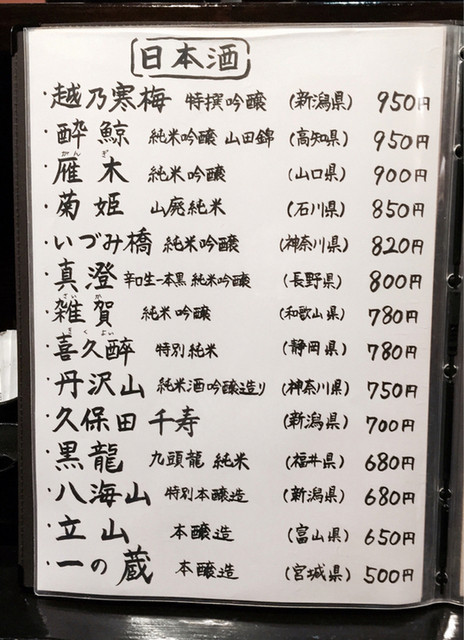 日本酒
・越乃寒梅 特撰吟醸 (新潟県) 950円
・酔鯨 純米吟醸 山田錦 (高知県) 950円
がんぎ
・雁木 純米吟醸 (山口県) 900円
・菊姫 山廃純米 (石川県) 850円
・いづみ橋 純米吟醸 (神奈川県) 820円
・真澄 辛口生一本黒 純米吟醸 (長野県) 800円
さいか
・雑賀 純米吟醸 (和歌山県) 780円
きくよい
・喜久酔 特別純米 (静岡県) 780円
・丹沢山 純米酒吟醸造り (神奈川県) 750円
・久保田 千寿 (新潟県) 700円
・黒龍 九頭龍 純米 (福井県) 680円
・八海山 特別本醸造 (新潟県) 680円
・立山 本醸造 (富山県) 650円
・一の蔵 本醸造 (宮城県) 500円